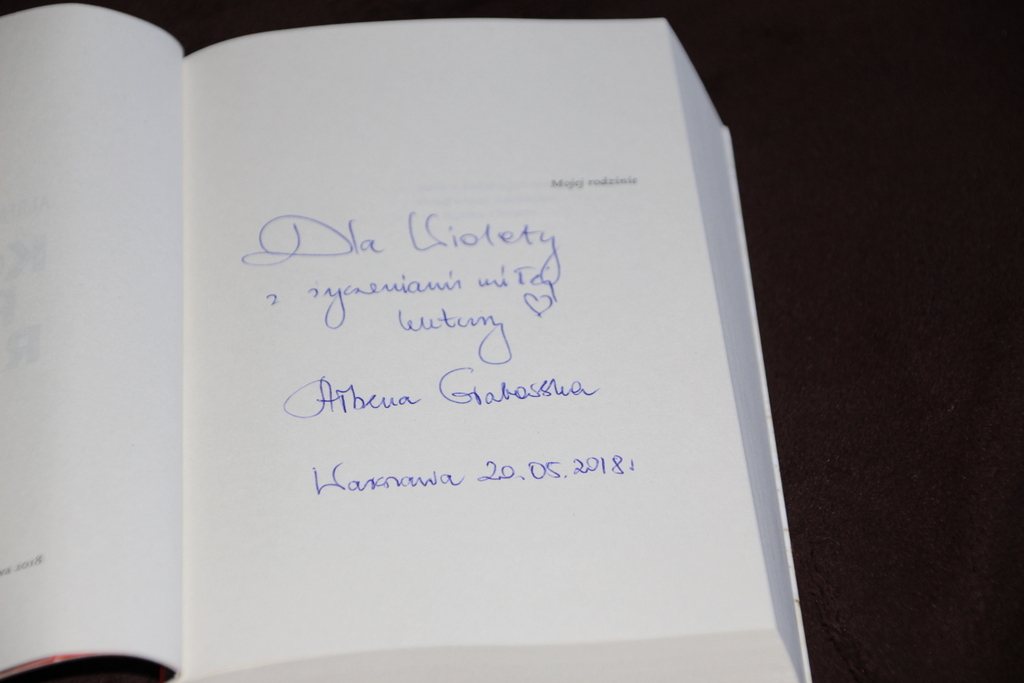 Mojej rodzinie
Dla Wiolety
z życzeniami miłej
lektury
Ałbena Grabowska
Warszawa 20.05.2018r
2018